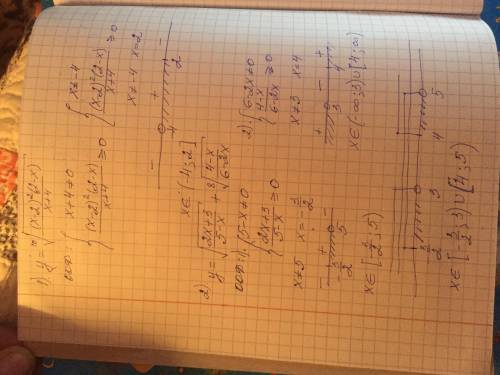 1) y = ¹⁰√((x-2)²(2-x)/(x+4))
ООФ { x+4≠0
(x-2)²(2-x)/(x+4) ≥ 0
{ x≠-4
(x-2)²(2-x)/(x+4) ≥ 0
x≠-4 x=2
- + -
-4 2
x∈(-4; 2]
2) y = √((2x+3)/(5-x)) + ⁸√((4-x)/(6-2x))
ООФ: 1) { 5-x≠0
(2x+3)/(5-x) ≥ 0
x≠5 x=-3/2
- + -
-3/2 5
x∈[-3/2; 5)
2) { 6-2x≠0
(4-x)/(6-2x) ≥ 0
x≠3 x=4
+ - +
3 4
x∈(-∞; 3)∪[4; ∞)
-3/2 3 4 5
x∈[-3/2; 3)∪[4; 5)